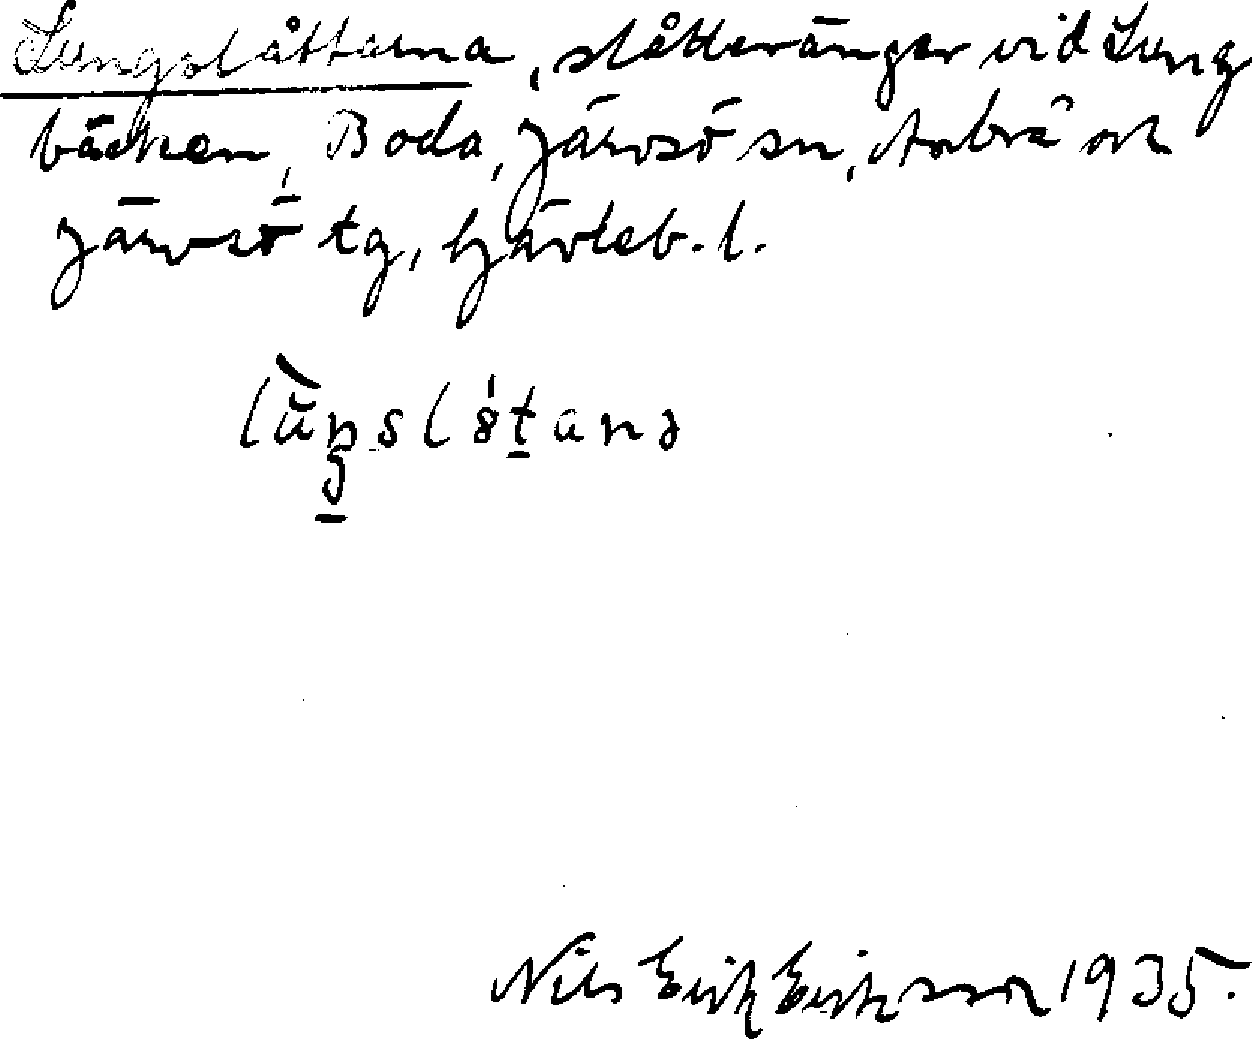 Lungslåttarna, slåtterängar vid Lung
bäcken, Boda, Järvsö sn, Arbrå och
Järvsö tg, Gävleb. l.
Nils Erik Eriksson 1935.